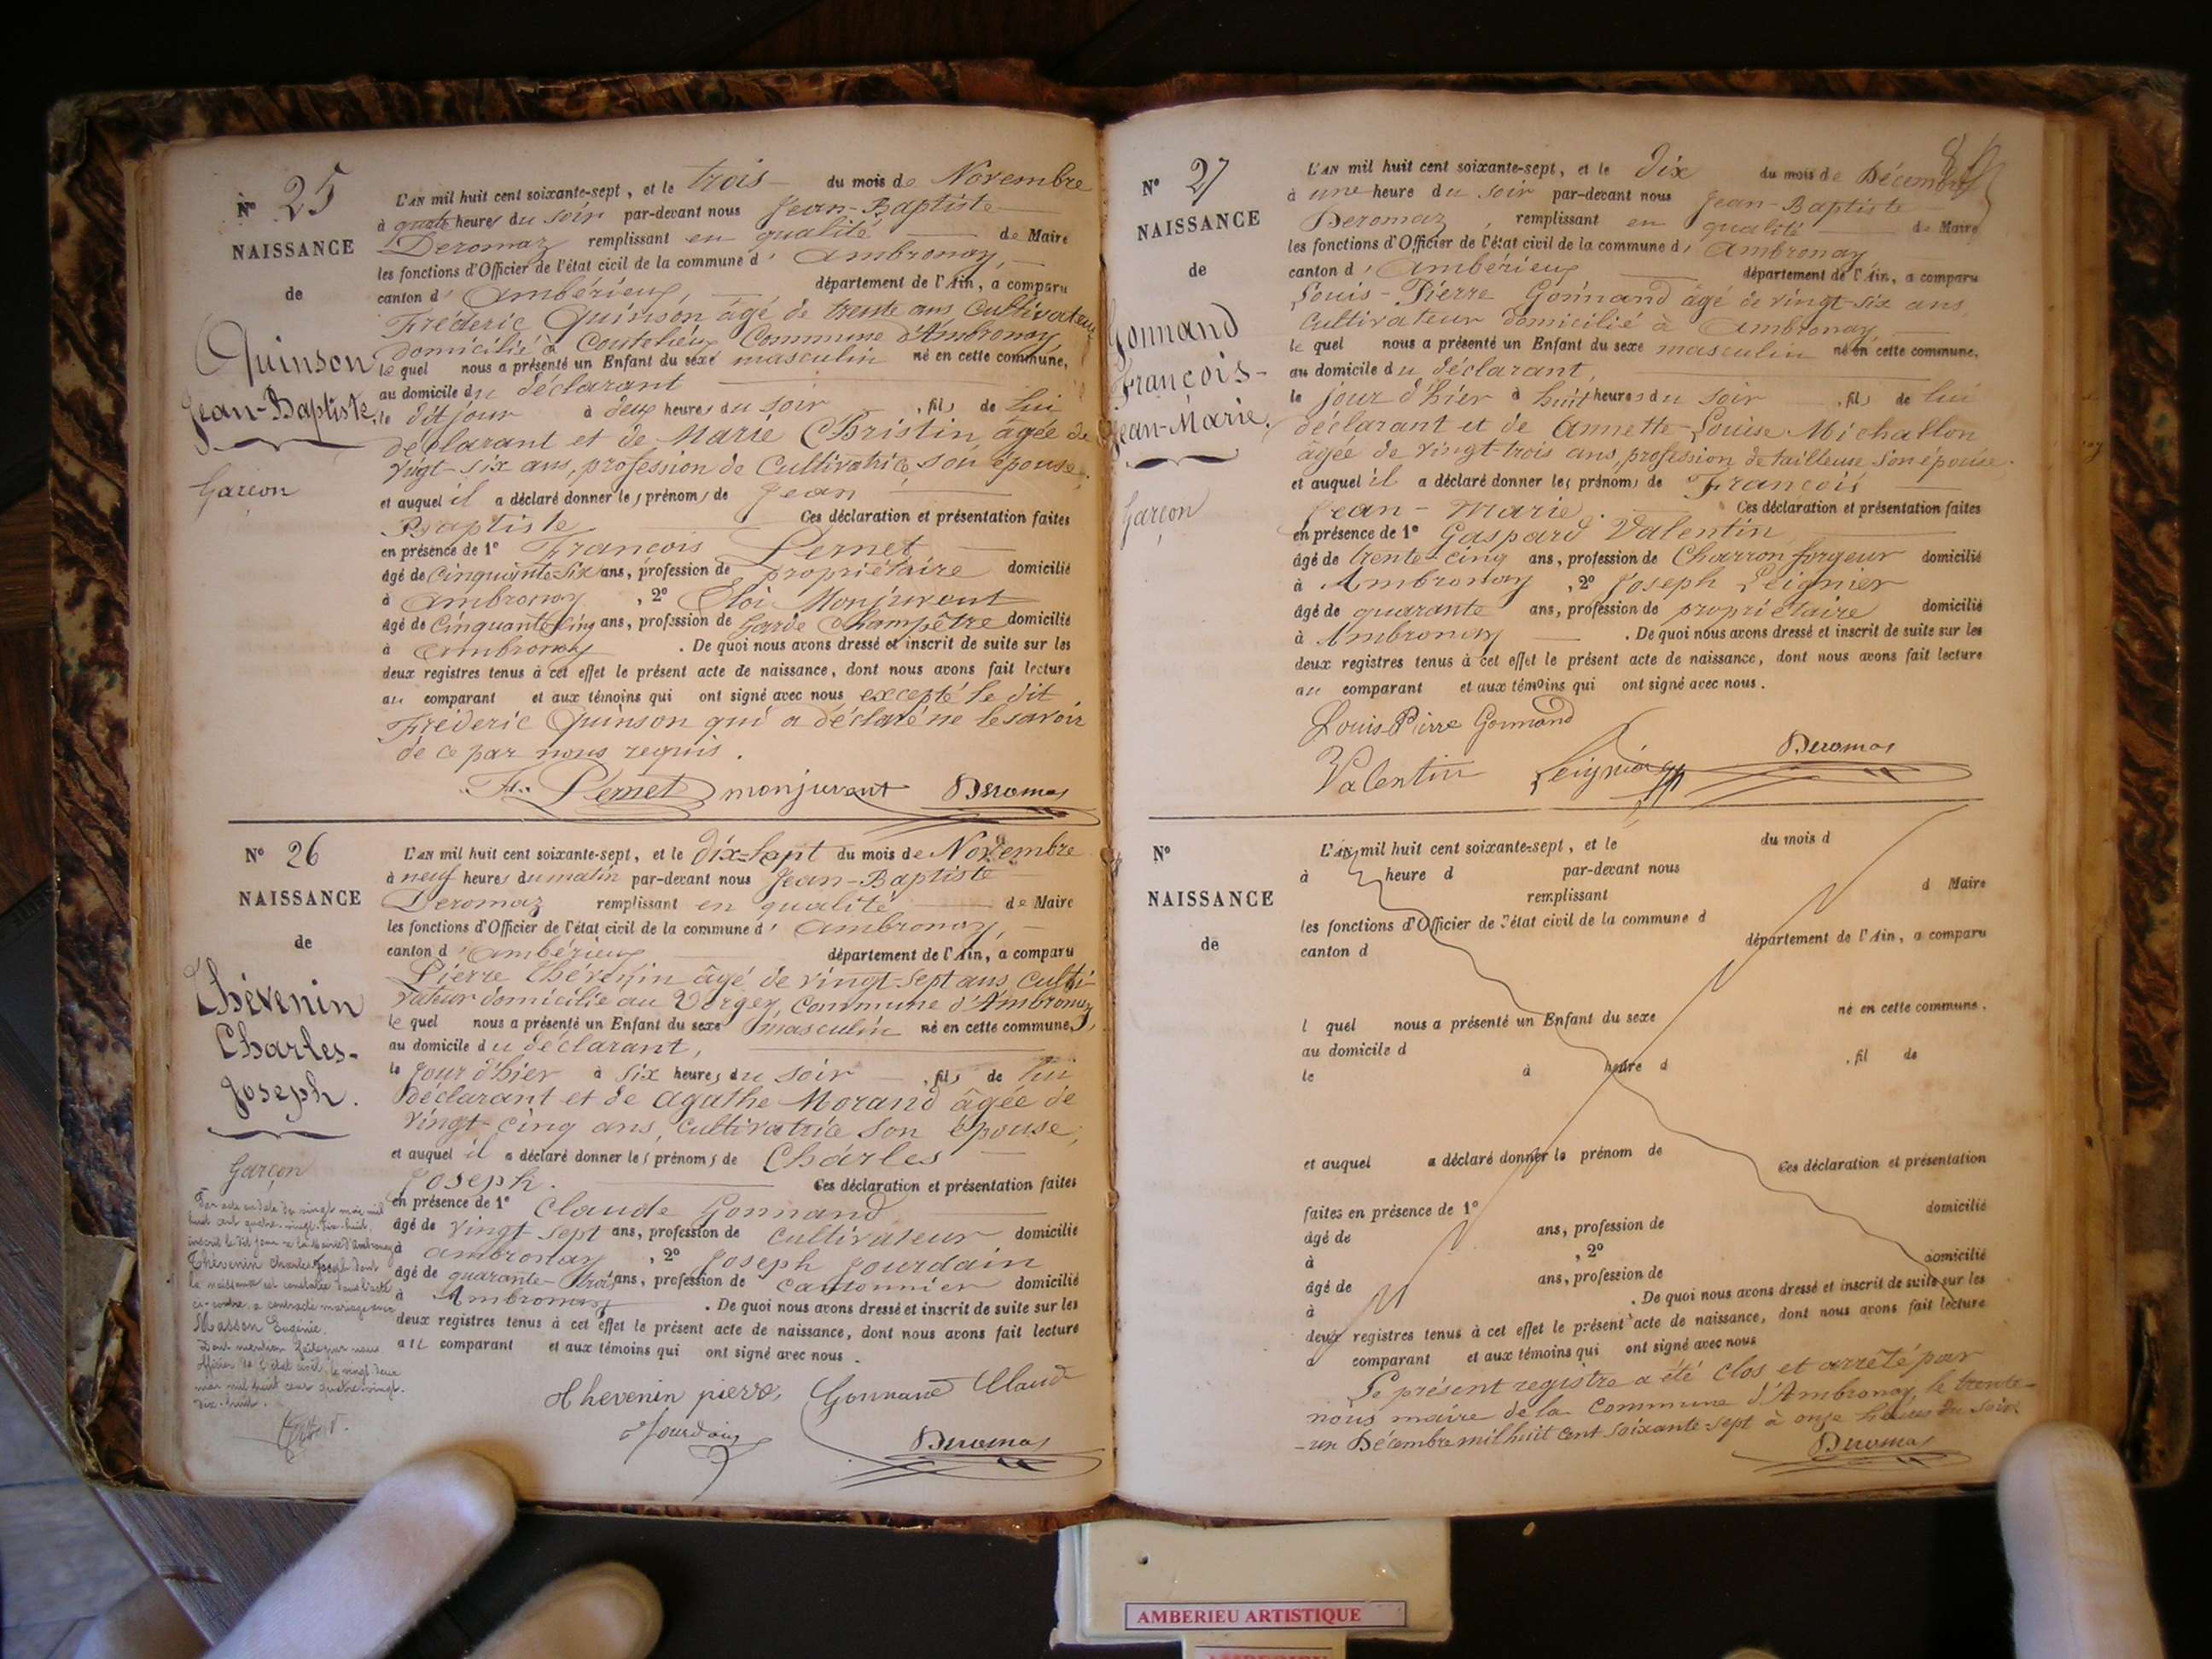 N° 25
NAISSANCE
de
Quinson
Jean-Baptiste
Garçon
L'AN mil huit cent soixante-sept, et le trois du mois de Novembre
à quatre heures du soir par-devant nous Jean-Baptiste
Deromaz remplissant en qualité de Maire
les fonctions d'Officier de l'état civil de la commune d'Ambronay,
canton d'Ambérieux, département de l'Ain, a comparu
Fréderic Quinson âgé de trente ans Cultivateur
domicilié à Coutelieux Commune d'Ambronay
lequel nous a présenté un Enfant du sexe masculin né en cette commune,
au domicile du déclarant
le dit jour à deux heures du soir, fils de lui
déclarant et de Marie Christin âgée de
vigt-six ans, profession de Cultivatrice son épouse.
et auquel il a déclaré donner les prénoms de Jean
Baptiste Ces déclaration et présentation faites
en présence de 1° François Pernet
âgé de Cinquante Six ans, profession de propriétaire domicilié
à Ambronay, 2° Eloi Monjuvent
âgé de Cinquante Cinq ans, profession de Garde Champêtre domicilié
à Ambronay. De quoi nous avons dressé et inscrit de suite sur les
deux registres tenus à cet effet le présent acte de naissance, dont nous avons fait lecture
au comparant et aux témoins qui ont signé avec nous excepté le dit
Fréderic Quinson qui a déclaré ne le savoir
de ce par nous requis.
Fs. Pernet monjuvent Deromas
N° 26
NAISSANCE
de
Thévenin
Charles-
Joseph.
Garçon
Par acte en date du vingt mai mil
huit cent quatre-vingt-dix-huit,
inscrit le dit jour à la Mairie d'Ambronay
Thévenin Charles Joseph dont
la naissance est constatée dans l'acte
ci-contre, a contracté mariage avec
Masson Eugénie.
Dont mention faite par nous
officier de l'état civil, le vingt deux
mai mil huit cent quatre-vingt-
dix-huit.
L'AN mil huit cent soixante-sept, et le dix-Sept du mois de Novembre
à neuf heures du matin par-devant nous Jean-Baptiste
Deromaz remplissant en qualité de Maire
les fonctions d'Officier de l'état civil de la commune d'Ambronay,
canton d'Ambérieux département de l'Ain, a comparu
Pierre Thévenin âgé de vingt-sept ans, culti-
vateur domicilié au Verger, Commune d'Ambronay
lequel nous a présenté un Enfant du sexe masculin né en cette commune,
au domicile du déclarant,
le Jour d'hier à Six heures du soir, fils de lui
déclarant et de Agathe Morand âgée de
vingt-cinq ans, cultivatrice son épouse,
et auquel il a déclaré donner les prénoms de Charles
Joseph. Ces déclaration et présentation faites
en présence de 1° Claude Gonnand
âgé de vingt sept ans, profession de Cultivateur domicilié
à Ambronay, 2° Joseph Jourdain
âgé de quarante-trois ans, profession de cantonnier domicilié
à Ambronay. De quoi nous avons dressé et inscrit de suite sur les
deux registres tenus à cet effet le présent acte de naissance, dont nous avons fait lecture
au comparant et aux témoins qui ont signé avec nous.
Thevenin pierre, Gonnand Claud
Jourdain Deromas
N° 27
NAISSANCE
de
Gonnand
François-
Jean-Marie.
Garçon
L'AN mil huit cent soixante-sept, et le dix du mois de Décembre
à une heure du soir par-devant nous Jean-Baptiste
Deromaz, remplissant en qualité de Maire
les fonctions d'Officier de l'état civil de la commune d'Ambronay
canton d'Ambérieux département de l'Ain, a comparu
Louis-Pierre Gonnand âgé de vingt-six ans
Cultivateur domicilié à Ambronay
lequel nous a présenté un Enfant du sexe masculin né en cette commune,
au domicile du déclarant,
le jour d'hier à huit heures du soir, fils de lui
déclarant et de Annette-Louise Michallon
âgée de vingt-trois ans, profession de tailleuse son épouse.
et auquel il a déclaré donner les prénoms de François
Jean-Marie. Ces déclaration et présentation faites
en présence de 1° Gaspard Valentin
âgé de trente-cinq ans, profession de Charron forgeur domicilié
à Ambronay, 2° Joseph Leignier
âgé de quarante ans, profession de propriétaire domicilié
à Ambronay. De quoi nous avons dressé et inscrit de suite sur les
deux registres tenus à cet effet le présent acte de naissance, dont nous avons fait lecture
au comparant et aux témoins qui ont signé avec nous.
Louis Pirre Gonnand
Valentin Leignier Deromas
N°
NAISSANCE
de
L'AN mil huit cent soixante-sept, et le du mois d
à heure d par-devant nous
remplissant d Maire
les fonctions d'Officier de l'état civil de la commune d
canton d département de l'Ain, a comparu
l quel nous a présenté un Enfant du sexe né en cette commune.
au domicile d
le à heure d, fil de
et auquel a déclaré donner le prénom de
Ces déclaration et présentation
faites en présence de 1°
âgé de ans, profession de domicilié
à, 2°
âgé de ans, profession de domicilié
à. De quoi nous avons dressé et inscrit de suite sur les
deux registres tenus à cet effet le présent acte de naissance, dont nous avons fait lecture
a comparant et aux témoins qui ont signé avec nous
Le présent registre a été clos et arrêté par
nous maire de la Commune d'Ambronay, le trente-
-un Décembre mil huit cent soixante-sept à onze heures du soir
Deromas
AMBERIEU ARTISTIQUE